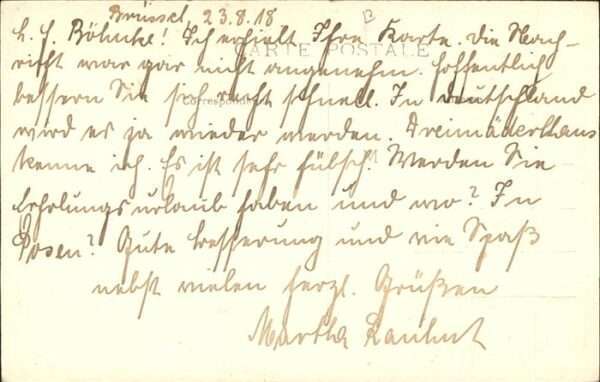 Brüssel, 23.8.18
B
L. H. Böhnke! Ich erhielt Ihre Karte. Die Nach-
CARTE POSTALE
richt war gar nicht angenehm. Hoffentlich
bessern Sie sich recht schnell. In Deutschland
Correspondance
wird es ja wieder werden. Dreimäderlhaus
kenne ich. Es ist sehr hübsch! Werden Sie
Erholungsurlaub haben und wo? In
Posen? Gute Besserung und viel Spaß
nebst vielen herzl. Grüßen
Martha